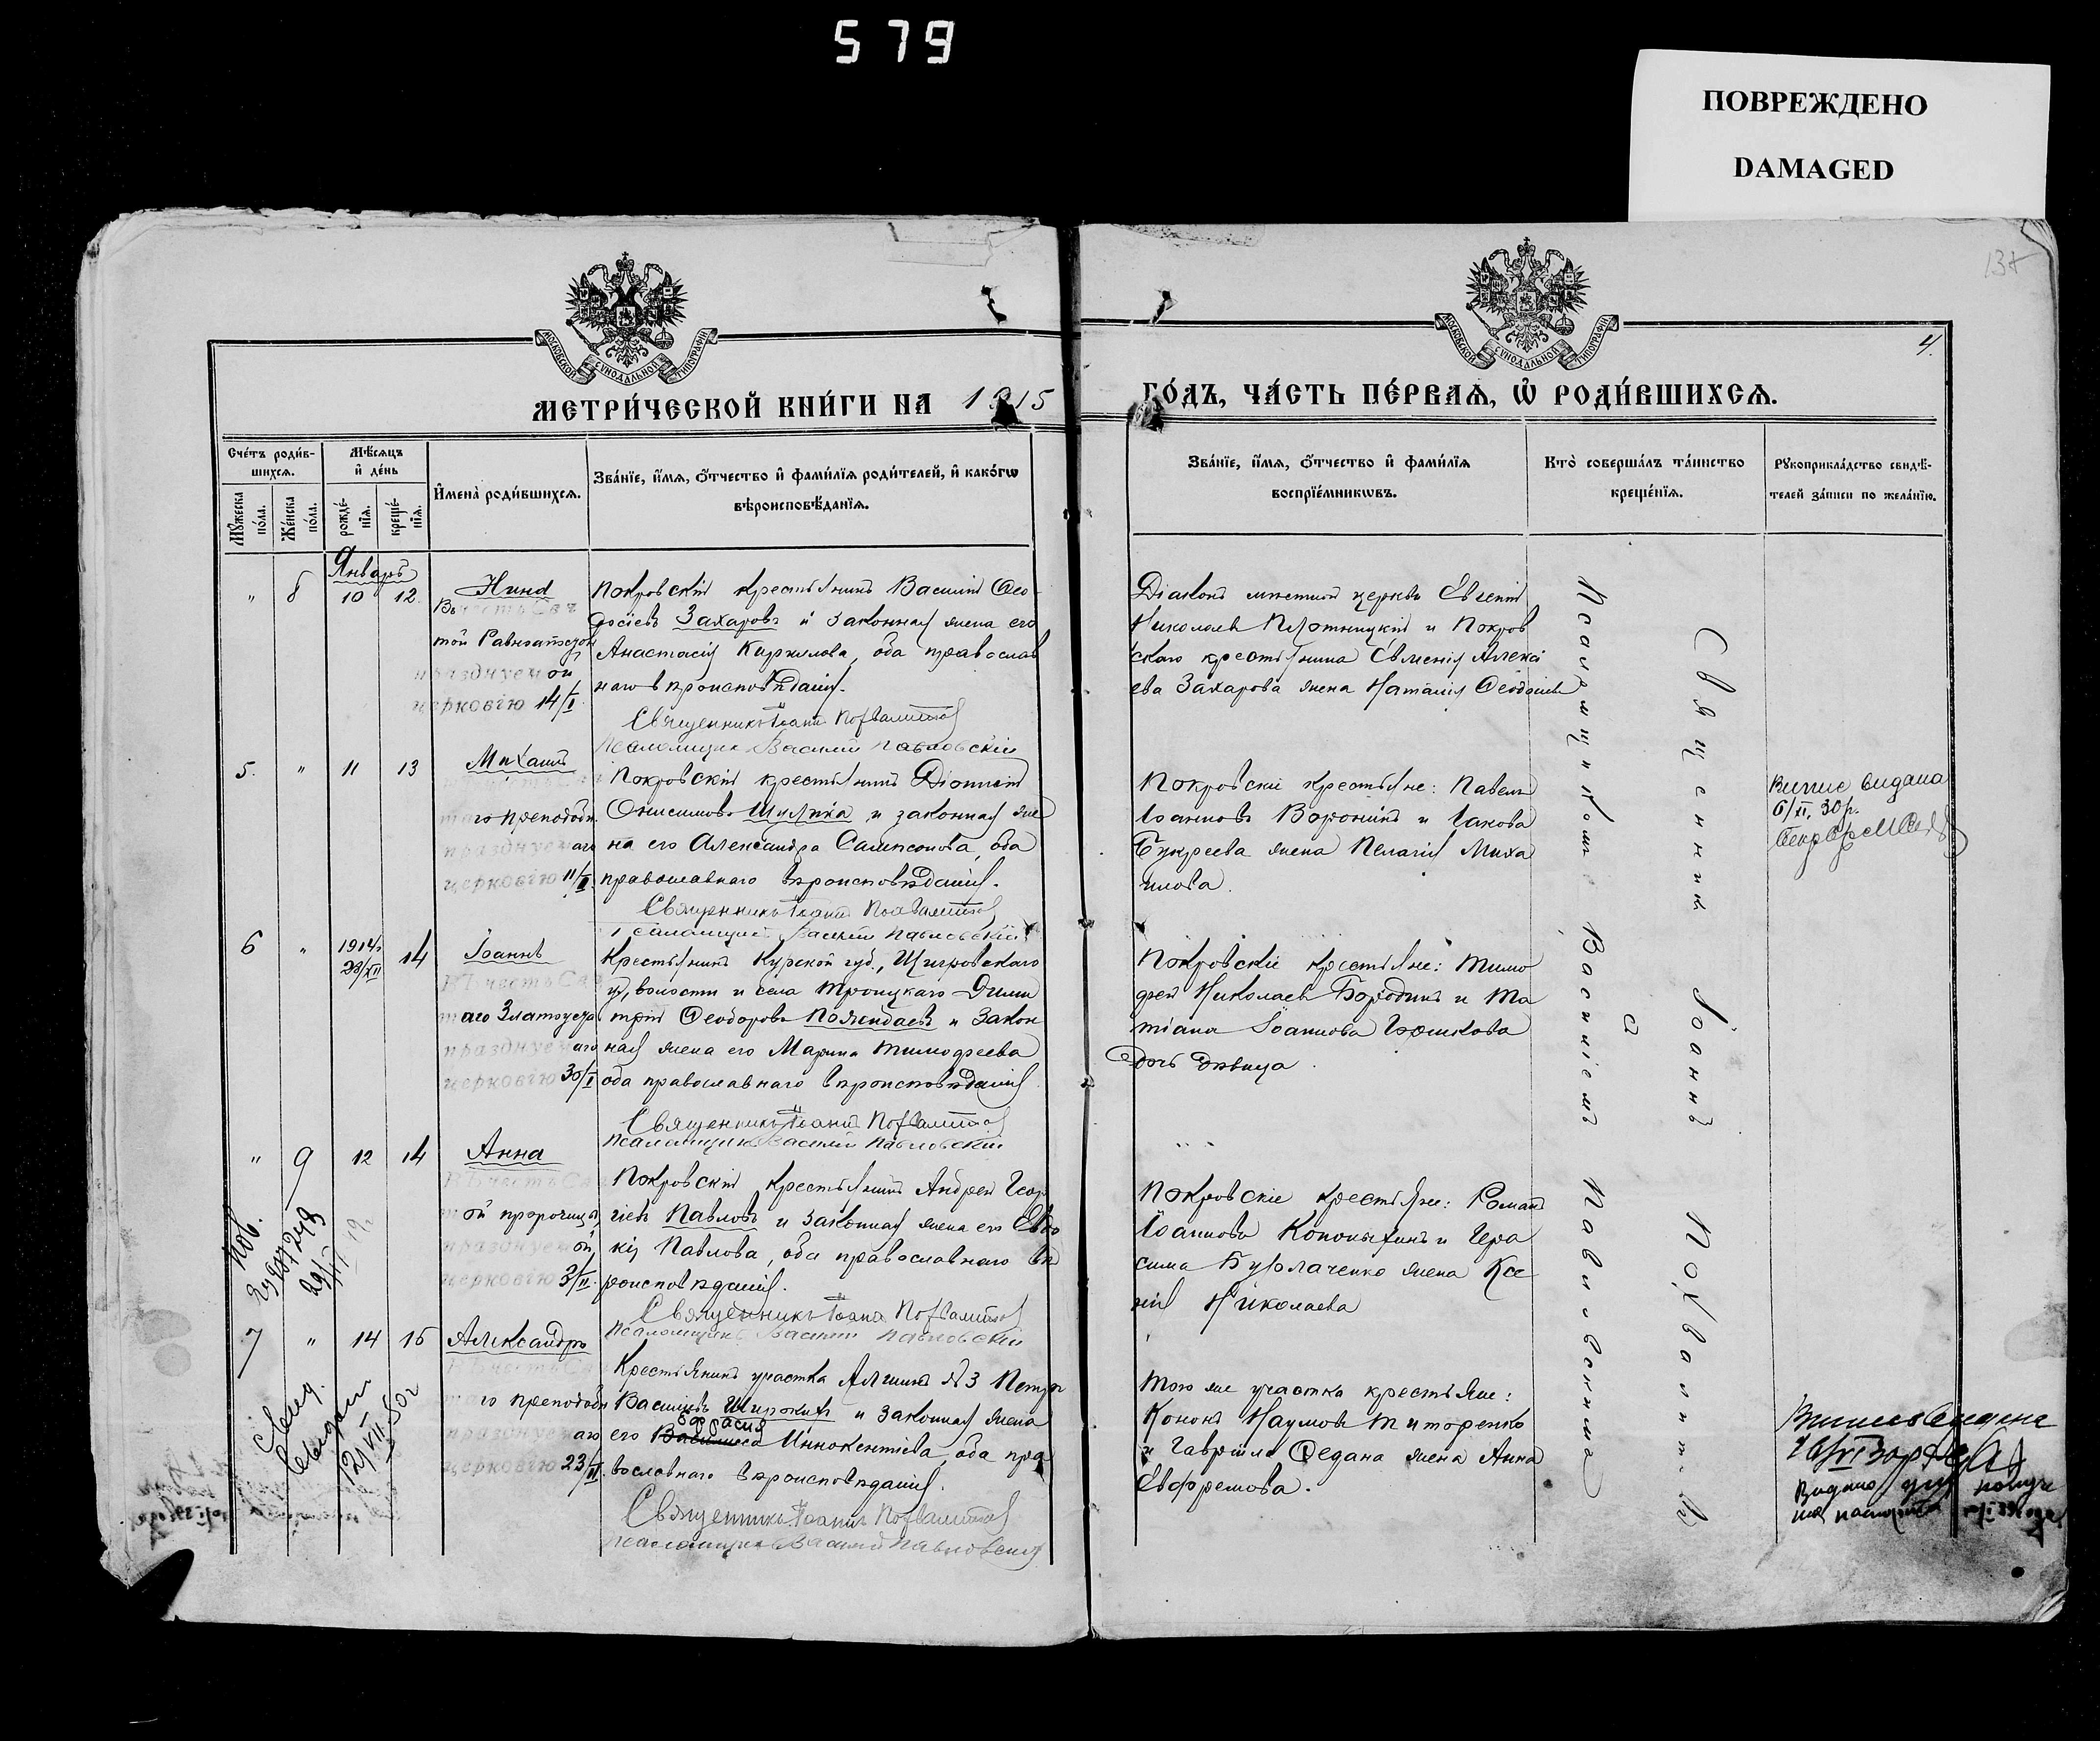 579
ПОВРЕЖДЕНО
DAMAGED
4.
МОСКОВСКОЙ СУНОДАЛЬНОЙ ТИПОГРАФІИ
МОСКОВСКОЙ СУНОДАЛЬНОЙ ТИПОГРАФІИ
МЕТРИ́ЧЕСКОЙ КНИ́ГИ НА 1915 ГО́ДЪ, ЧА́СТЬ ПЕ́РВАѦ, Ѡ҆ РОДИ́ВШИХСѦ.
Сче́тъ роди́в-
шихсѧ.
Мꙋ́жеска по́ла.
Же́нска по́ла.
Мѣ́сѧцъ
и҆ де́нь
рожде́-
нїѧ.
креще́-
нїѧ.
И҆мена̀ роди́вшихсѧ.
Зва́нїе, и҆́мѧ, ѻ҆́тчество и҆ фами́лїѧ роди́телей, и҆ како́гѡ
вѣроисповѣ́данїѧ.
Зва́нїе, и҆́мѧ, ѻ҆́тчество и҆ фами́лїѧ
воспрїе́мникѡвъ.
Кто̀ соверша́лъ та́инство
креще́нїѧ.
Рꙋкоприкла́дство свидѣ́-
телей за́писи по жела́нїю.
Январь
" 8 10 12 Нина
той Равноапостол
празднуемой
церковію 14/I
Покровскій крестьянинъ Василій Ѳео
досіевъ Захаровъ и законная жена его
Анастасія Кириллова, оба православ
наго вѣроисповѣданія.
Священникъ Іоаннъ Похвалитовъ
Псаломщикъ Василій Павловскій
Діаконъ мѣстной церкви Евгеній
Николаевъ Плотницкій и Покров
скаго крестьянина Евменія Алексѣ
ева Захарова жена Наталія
5. " 11 13 Михаилъ
аго преподобн.
празднуемаго
церковію 11/II
Покровскій крестьянинъ Діонисій
Онисимовъ Шиляка и законная же
на его Александра Сампсонова, оба
православнаго вѣроисповѣданія.
Священникъ Іоаннъ Похвалитовъ
Псаломщикъ Василій Павловскій
Покровскіе крестьяне: Павелъ
Іоанновъ Воронинъ и Іакова
Букреева жена Пелагія Миха
илова.
Выпись выдана
6/XI, 30 г.
6 " 1914 г. 28/XII 14 Іоаннъ
Въ честь Св
аго Златоуста
празднуемаго
церковію 30/I
Крестьянинъ Курской губ., Щигровскаго
у, волости и села Троицкаго Дими
трій Ѳеодоровъ Пожидаевъ и закон
ная жена его Марина Тимоѳеева
оба православнаго вѣроисповѣданія
Священникъ Іоаннъ Похвалитовъ
Псаломщикъ Василій Павловскій
Покровскіе крестьяне: Тимо
ѳей Николаевъ Бородинъ и Та
тіана Іоаннова Горшкова
дочь дѣвица.
" 9 12 14 Анна
Въ честь Св
ой пророчицы
празднуемой
церковію 3/II
Покровскій крестьянинъ Андрей Геор
гіевъ Павловъ и законная жена его Евдо
кія Павлова, оба православнаго вѣ
роисповѣданія.
Священникъ Іоаннъ Похвалитовъ
Псаломщикъ Василій Павловскій
Покровскіе крестьяне: Романъ
Іоанновъ Кононыхинъ и Гера
сима Бурлаченко жена Ксе
нія Николаева
7 " 14 15 Александръ
аго преподобн
празднуемаго
церковію 23/II.
Крестьянинъ участка Алгинъ №3 Петръ
Васильевъ Широкихъ и законная жена
его Иннокентіева, оба пра
вославнаго вѣроисповѣданія.
Священникъ Іоаннъ Похвалитовъ
Псаломщикъ Василій Павловскій
Того же участка крестьяне:
Кононъ Наумовъ Титоренко
и Гавріила Ѳедана жена Анна
Евфремова.
Священникъ Іоаннъ Похвалитовъ
съ
Псаломщикомъ Василіемъ Павловскимъ